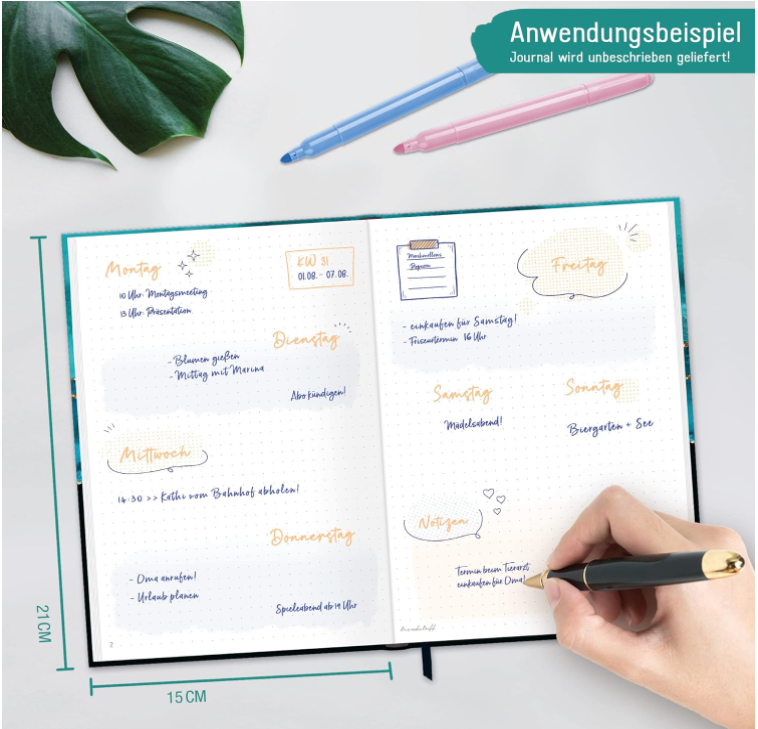 Anwendungsbeispiel
Journal wird unbeschrieben geliefert!
Montag
KW 31
01.08. - 07.08.
10 Uhr: Montagsmeeting
13 Uhr: Präsentation
Dienstag
- Blumen gießen
- Mittag mit Marina
Abo kündigen!
Mittwoch
14:30 >> Kathi vom Bahnhof abholen!
Donnerstag
- Oma anrufen!
- Urlaub planen
Spieleabend ab 19 Uhr
2
Marshmallows
Popcorn
Freitag
- einkaufen für Samstag!
- Friseurtermin 16 Uhr
Samstag
Sonntag
Mädelsabend!
Biergarten + See
Notizen
Termin beim Tierarzt
einkaufen für Oma!
21 CM
15 CM